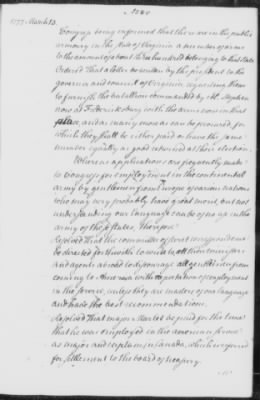 1777 March 13.
Congress being informed that there are in the public
armory in the State of Virginia a number of arms
to the amount of about three hundred belonging to that State
Ordered That a letter be written by the president to the
governor and council of Virginia requesting them
to furnish the battallions commanded by
now at Fredericksburg with the arms now in that
place, and as many more as can be procured, for
which they shall be either paid or have the same
number equally as good returned at their election.
Whereas applications are frequently made
to Congress for employment in the continental
army by gentlemen from foreign nations
who may very probably have great merit, but not
understanding our language can be of no use in the
army of these states, Therefore
Resolved That the committee of secret correspondence
be directed forthwith to write to all their ministers
and agents abroad to discourage all gentlemen from
coming to America with expectation of employment
in the service, unless they are masters of our language
and have the best recommendations.
Resolved That major be paid for the time
that he was employed in the american service
as major and captain in Canada, which is referred
for settlement to the board of treasury.